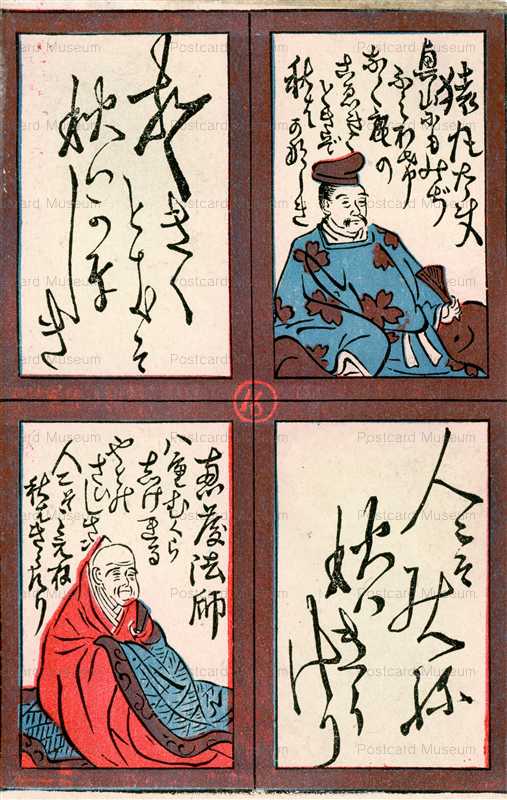 猿丸大夫
奥山にもみぢ
ふみわけ
なく鹿の
こゑきく
ときぞ
秋は
かなしき
声きく
ときぞ
秋はかなし
き
恵慶法師
八重むぐら
しげれる
やどの
さびしさに
人こそみえね
秋はきにけり
人こそ見えね
秋はきに
けり
Postcard Museum